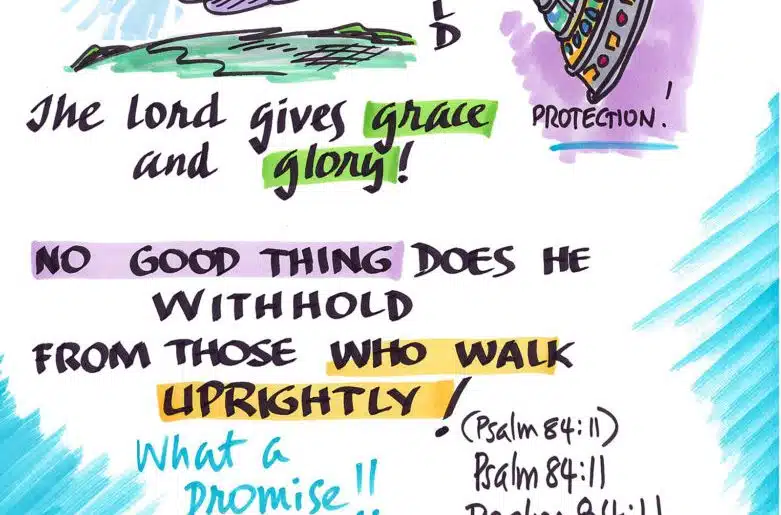 L
D
PROTECTION!
The Lord gives grace
and glory!
NO GOOD THING DOES HE
WITHHOLD
FROM THOSE WHO WALK
UPRIGHTLY!
(Psalm 84:11)
What a
promise!!
Psalm 84:11
Psalm 84:11